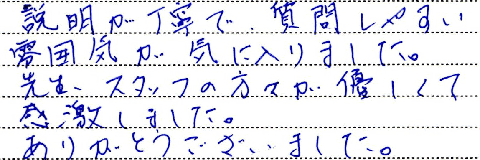 説明が丁寧で、質問しやすい
雰囲気が気に入りました。
先生、スタッフの方々が優しくて
感激しました。
ありがとうございました。